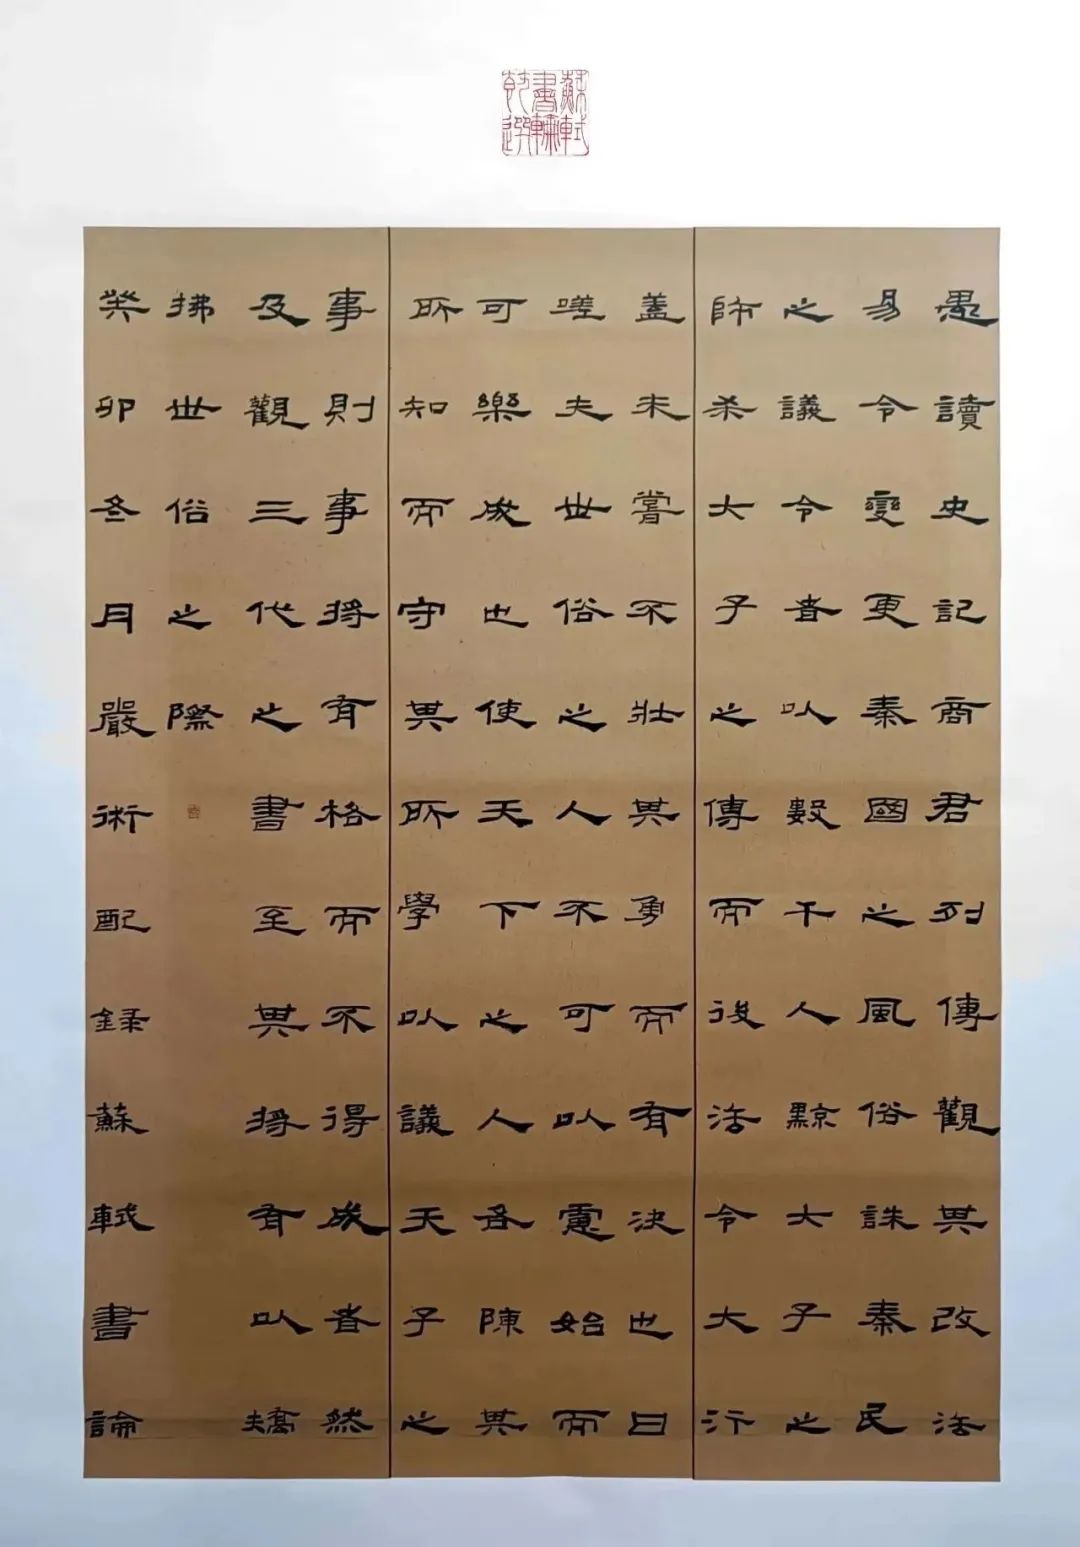 蘇軾書論節選
愚讀史記商君列傳觀其改法
易令變更秦國之風俗誅秦民
之議令者以數千人黥大子之
師殺大子之傅而後法令大行
蓋未嘗不壯其勇而有決也曰
嗟夫世俗之人不可以慮始而
可樂成也使天下之人各陳其
所知而守其所學以議天子之
事則事將有格而不得成者然
及觀三代之書至其將有以矯
拂世俗之際
癸卯冬月嚴術配録蘇軾書論